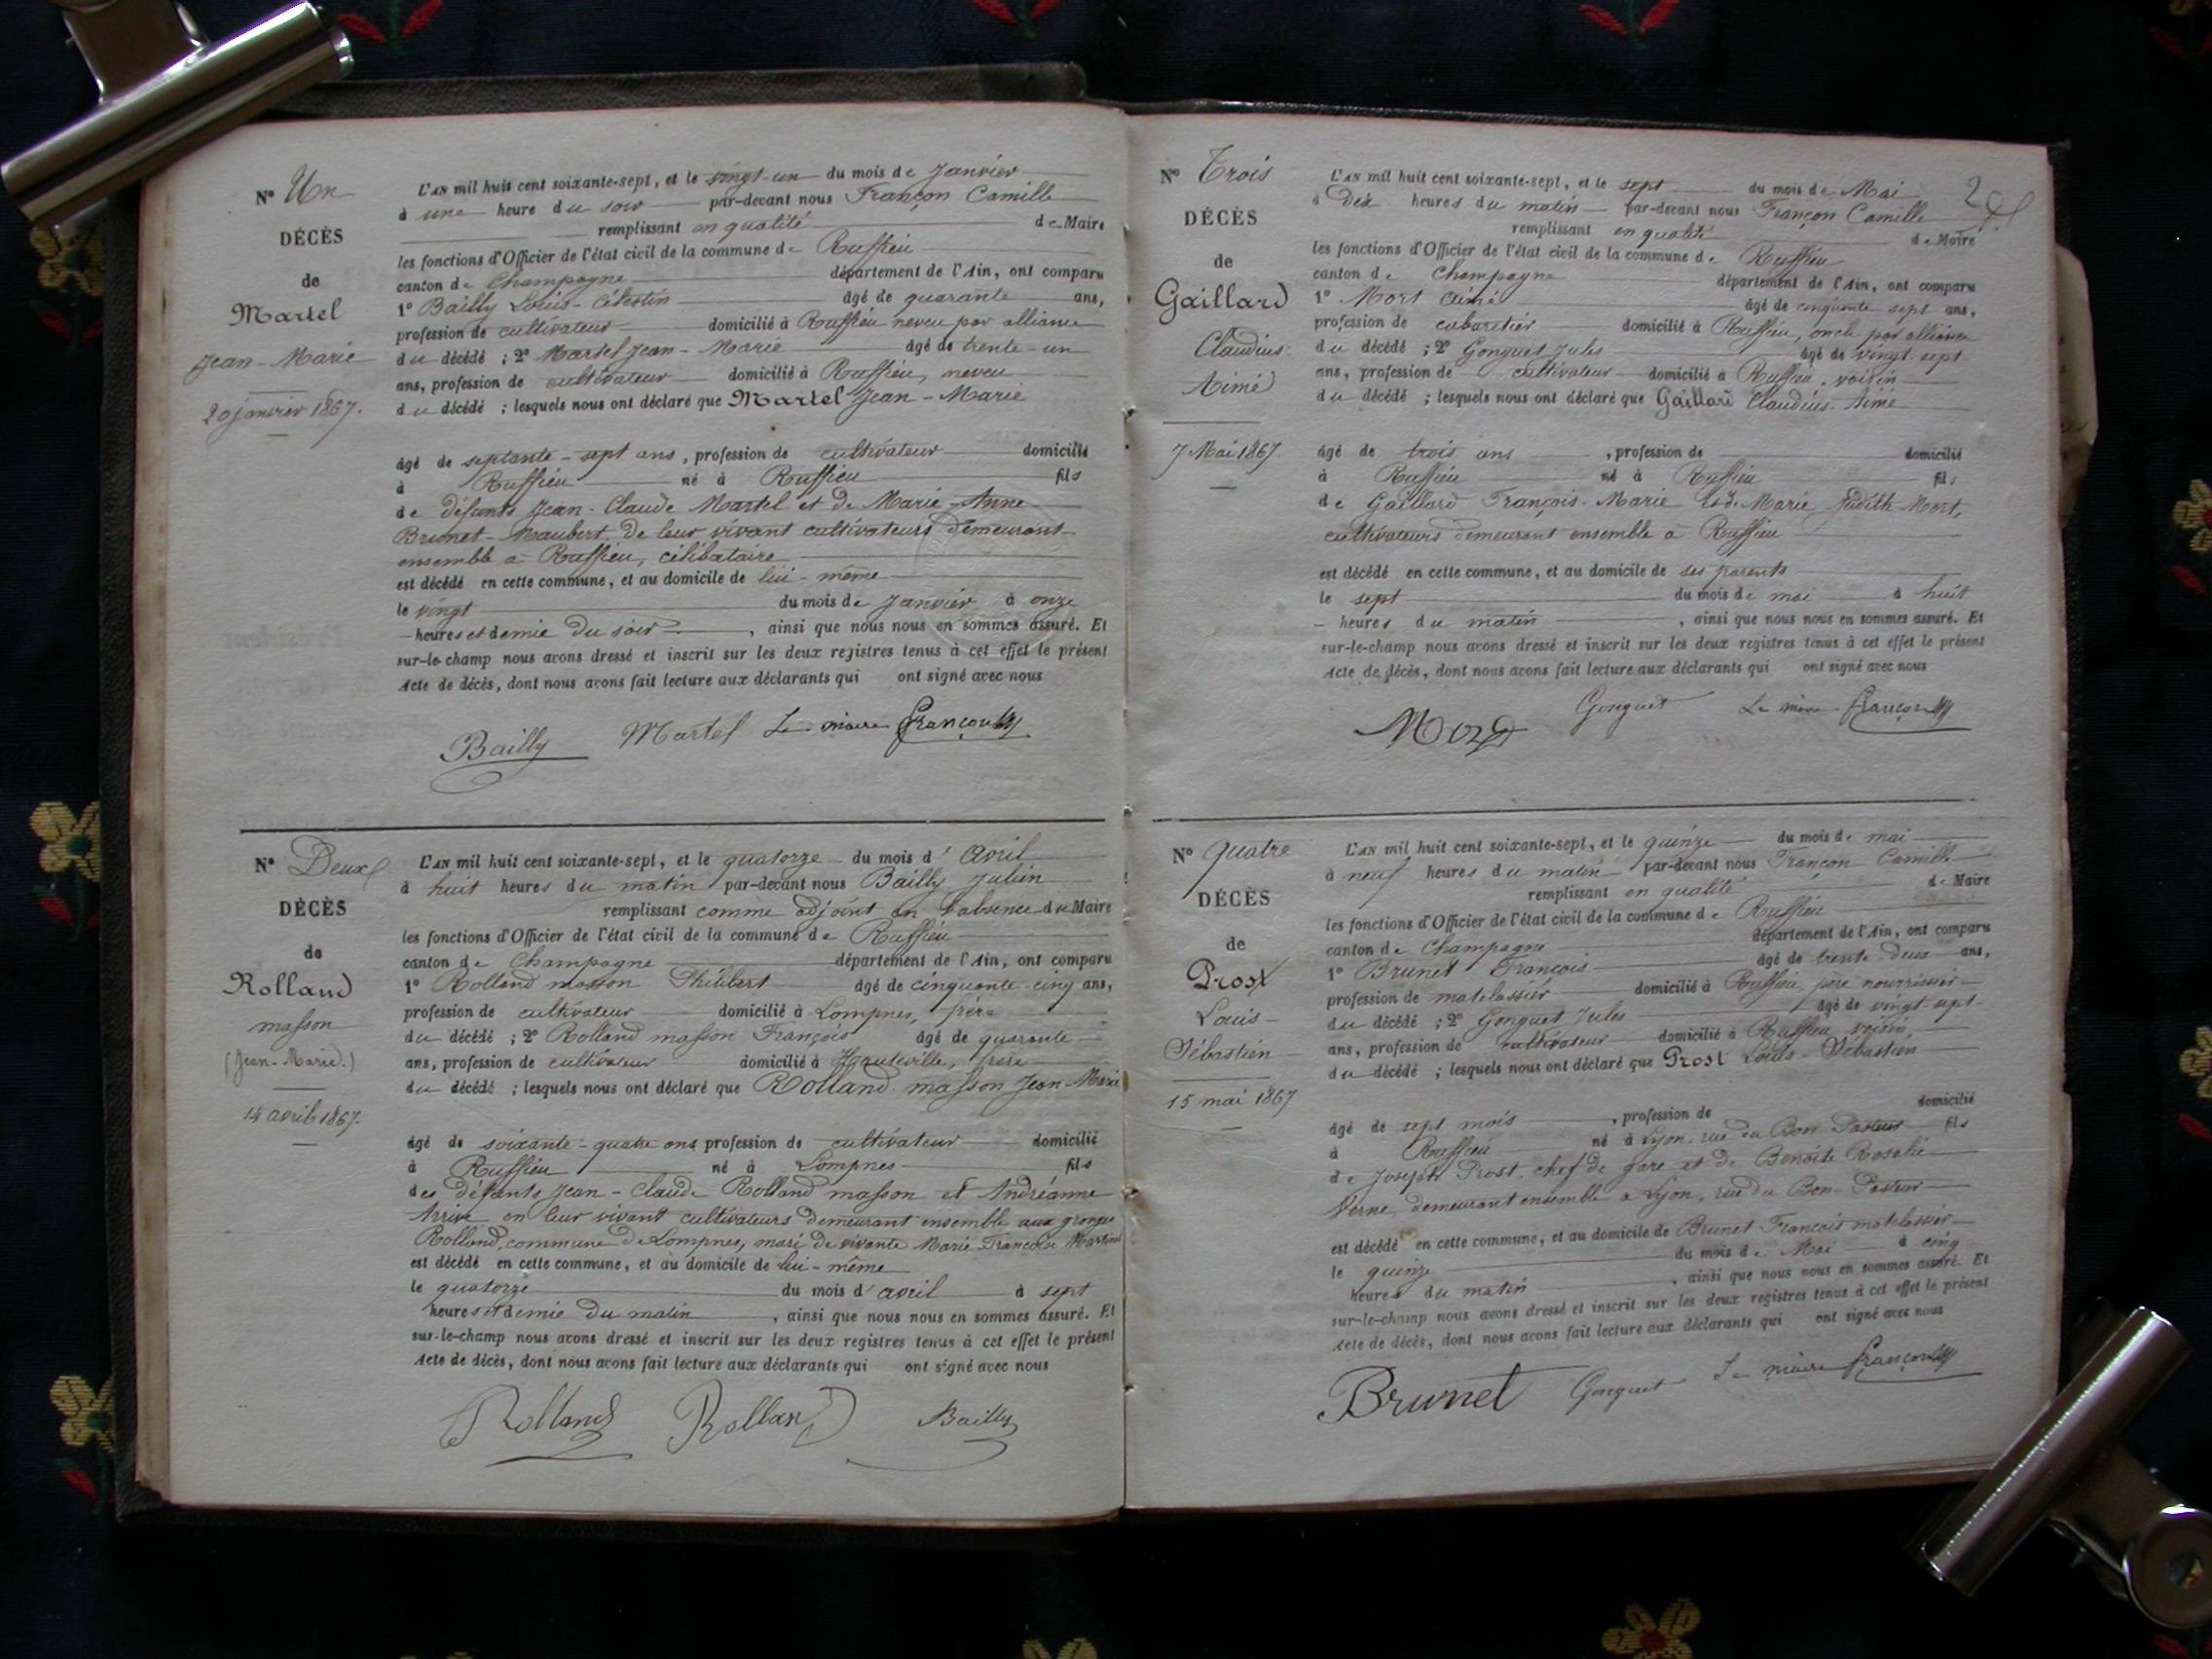 N° Un
DÉCÈS
de
Martel
Jean-Marie
20 janvier 1867.
L'AN mil huit cent soixante-sept, et le vingt-un du mois de Janvier
à une heure du soir par-devant nous Françon Camille
remplissant en qualité de Maire
les fonctions d'Officier de l'état civil de la commune de Ruffieu
canton de Champagne département de l'Ain, ont comparu
1° Bailly Louis-Célestin âgé de quarante ans,
profession de cultivateur domicilié à Ruffieu neveu par alliance
du décédé ; 2° Martel Jean-Marie âgé de trente-un
ans, profession de cultivateur domicilié à Ruffieu, neveu
du décédé ; lesquels nous ont déclaré que Martel Jean-Marie
âgé de septante-sept ans, profession de cultivateur domicilié
à Ruffieu né à Ruffieu fils
de défunts Jean-Claude Martel et de Marie-Anne
Brunet-Maubert. De leur vivant cultivateurs demeurant
ensemble à Ruffieu, célibataire
est décédé en cette commune, et au domicile de lui-même
le vingt du mois de Janvier à onze
heures et demie du soir, ainsi que nous nous en sommes assuré. Et
sur-le-champ nous avons dressé et inscrit sur les deux registres tenus à cet effet le présent
Acte de décès, dont nous avons fait lecture aux déclarants qui ont signé avec nous
Bailly Martel Le maire Françon
N° Deux
DÉCÈS
de
Rolland
masson
(Jean-Marie.)
14 avril 1867.
L'AN mil huit cent soixante-sept, et le quatorze du mois d' Avril
à huit heures du matin par-devant nous Bailly Julien
remplissant comme adjoint en l'absence du Maire
les fonctions d'Officier de l'état civil de la commune de Ruffieu
canton de Champagne département de l'Ain, ont comparu
1° Rolland masson Philibert âgé de cinquante-cinq ans,
profession de cultivateur domicilié à Lompnes, frère
du décédé ; 2° Rolland masson François âgé de quarante
ans, profession de cultivateur domicilié à Hauteville, frère
du décédé ; lesquels nous ont déclaré que Rolland masson Jean-Marie
âgé de soixante-quatre ans profession de cultivateur domicilié
à Ruffieu né à Lompnes fils
des défunts Jean-Claude Rolland masson et Andréanne
Arrive en leur vivant cultivateurs demeurant ensemble aux granges
Rolland, commune de Lompnes, mari de vivante Marie-Françoise Martine
est décédé en cette commune, et au domicile de lui-même
le quatorze du mois d'avril à sept
heures et demie du matin, ainsi que nous nous en sommes assuré. Et
sur-le-champ nous avons dressé et inscrit sur les deux registres tenus à cet effet le présent
Acte de décès, dont nous avons fait lecture aux déclarants qui ont signé avec nous
Rolland Rolland Bailly
N° Trois
DÉCÈS
de
Gaillard
Claudius
Aimé
7 Mai 1867
L'AN mil huit cent soixante-sept, et le sept du mois de Mai
à Dix heures du matin par-devant nous Françon Camille
remplissant en qualité de Maire
les fonctions d'Officier de l'état civil de la commune de Ruffieu
canton de Champagne département de l'Ain, ont comparu
1° Mort Aimé âgé de cinquante sept ans,
profession de cabaretier domicilié à Ruffieu, oncle par alliance
du décédé ; 2° Gonguet Jules âgé de vingt-sept
ans, profession de cultivateur domicilié à Ruffieu, voisin
du décédé ; lesquels nous ont déclaré que Gaillard Claudius-Aimé
âgé de trois ans, profession de domicilié
à Ruffieu né à Ruffieu fils
de Gaillard François-Marie et de Marie Judith Mort,
cultivateurs demeurant ensemble à Ruffieu
est décédé en cette commune, et au domicile de ses parents
le sept du mois de mai à huit
heures du matin, ainsi que nous nous en sommes assuré. Et
sur-le-champ nous avons dressé et inscrit sur les deux registres tenus à cet effet le présent
Acte de décès, dont nous avons fait lecture aux déclarants qui ont signé avec nous
Mort Gonguet Le maire Françon
N° Quatre
DÉCÈS
de
Prost
Louis-
Sébastien
15 mai 1867
L'AN mil huit cent soixante-sept, et le quinze du mois de mai
à neuf heures du matin par-devant nous Françon Camille
remplissant en qualité de Maire
les fonctions d'Officier de l'état civil de la commune de Ruffieu
canton de Champagne département de l'Ain, ont comparu
1° Brunet François âgé de trente-deux ans,
profession de matelassier domicilié à Ruffieu, père nourricier
du décédé ; 2° Gonguet Jules âgé de vingt sept
ans, profession de cultivateur domicilié à Ruffieu voisin,
du décédé ; lesquels nous ont déclaré que Prost Louis-Sébastien
âgé de sept mois, profession de domicilié
à Ruffieu né à Lyon, rue du Bon-Pasteur fils
de Joseph Prost, chef de gare et de Benoîte Rosalie
Verne, demeurant ensemble à Lyon, rue du Bon-Pasteur
est décédé en cette commune, et au domicile de Brunet François matelassier
le quinze du mois de Mai à cinq
heures du matin, ainsi que nous nous en sommes assuré. Et
sur-le-champ nous avons dressé et inscrit sur les deux registres tenus à cet effet le présent
Acte de décès, dont nous avons fait lecture aux déclarants qui ont signé avec nous
Brunet Gonguet Le maire Françon